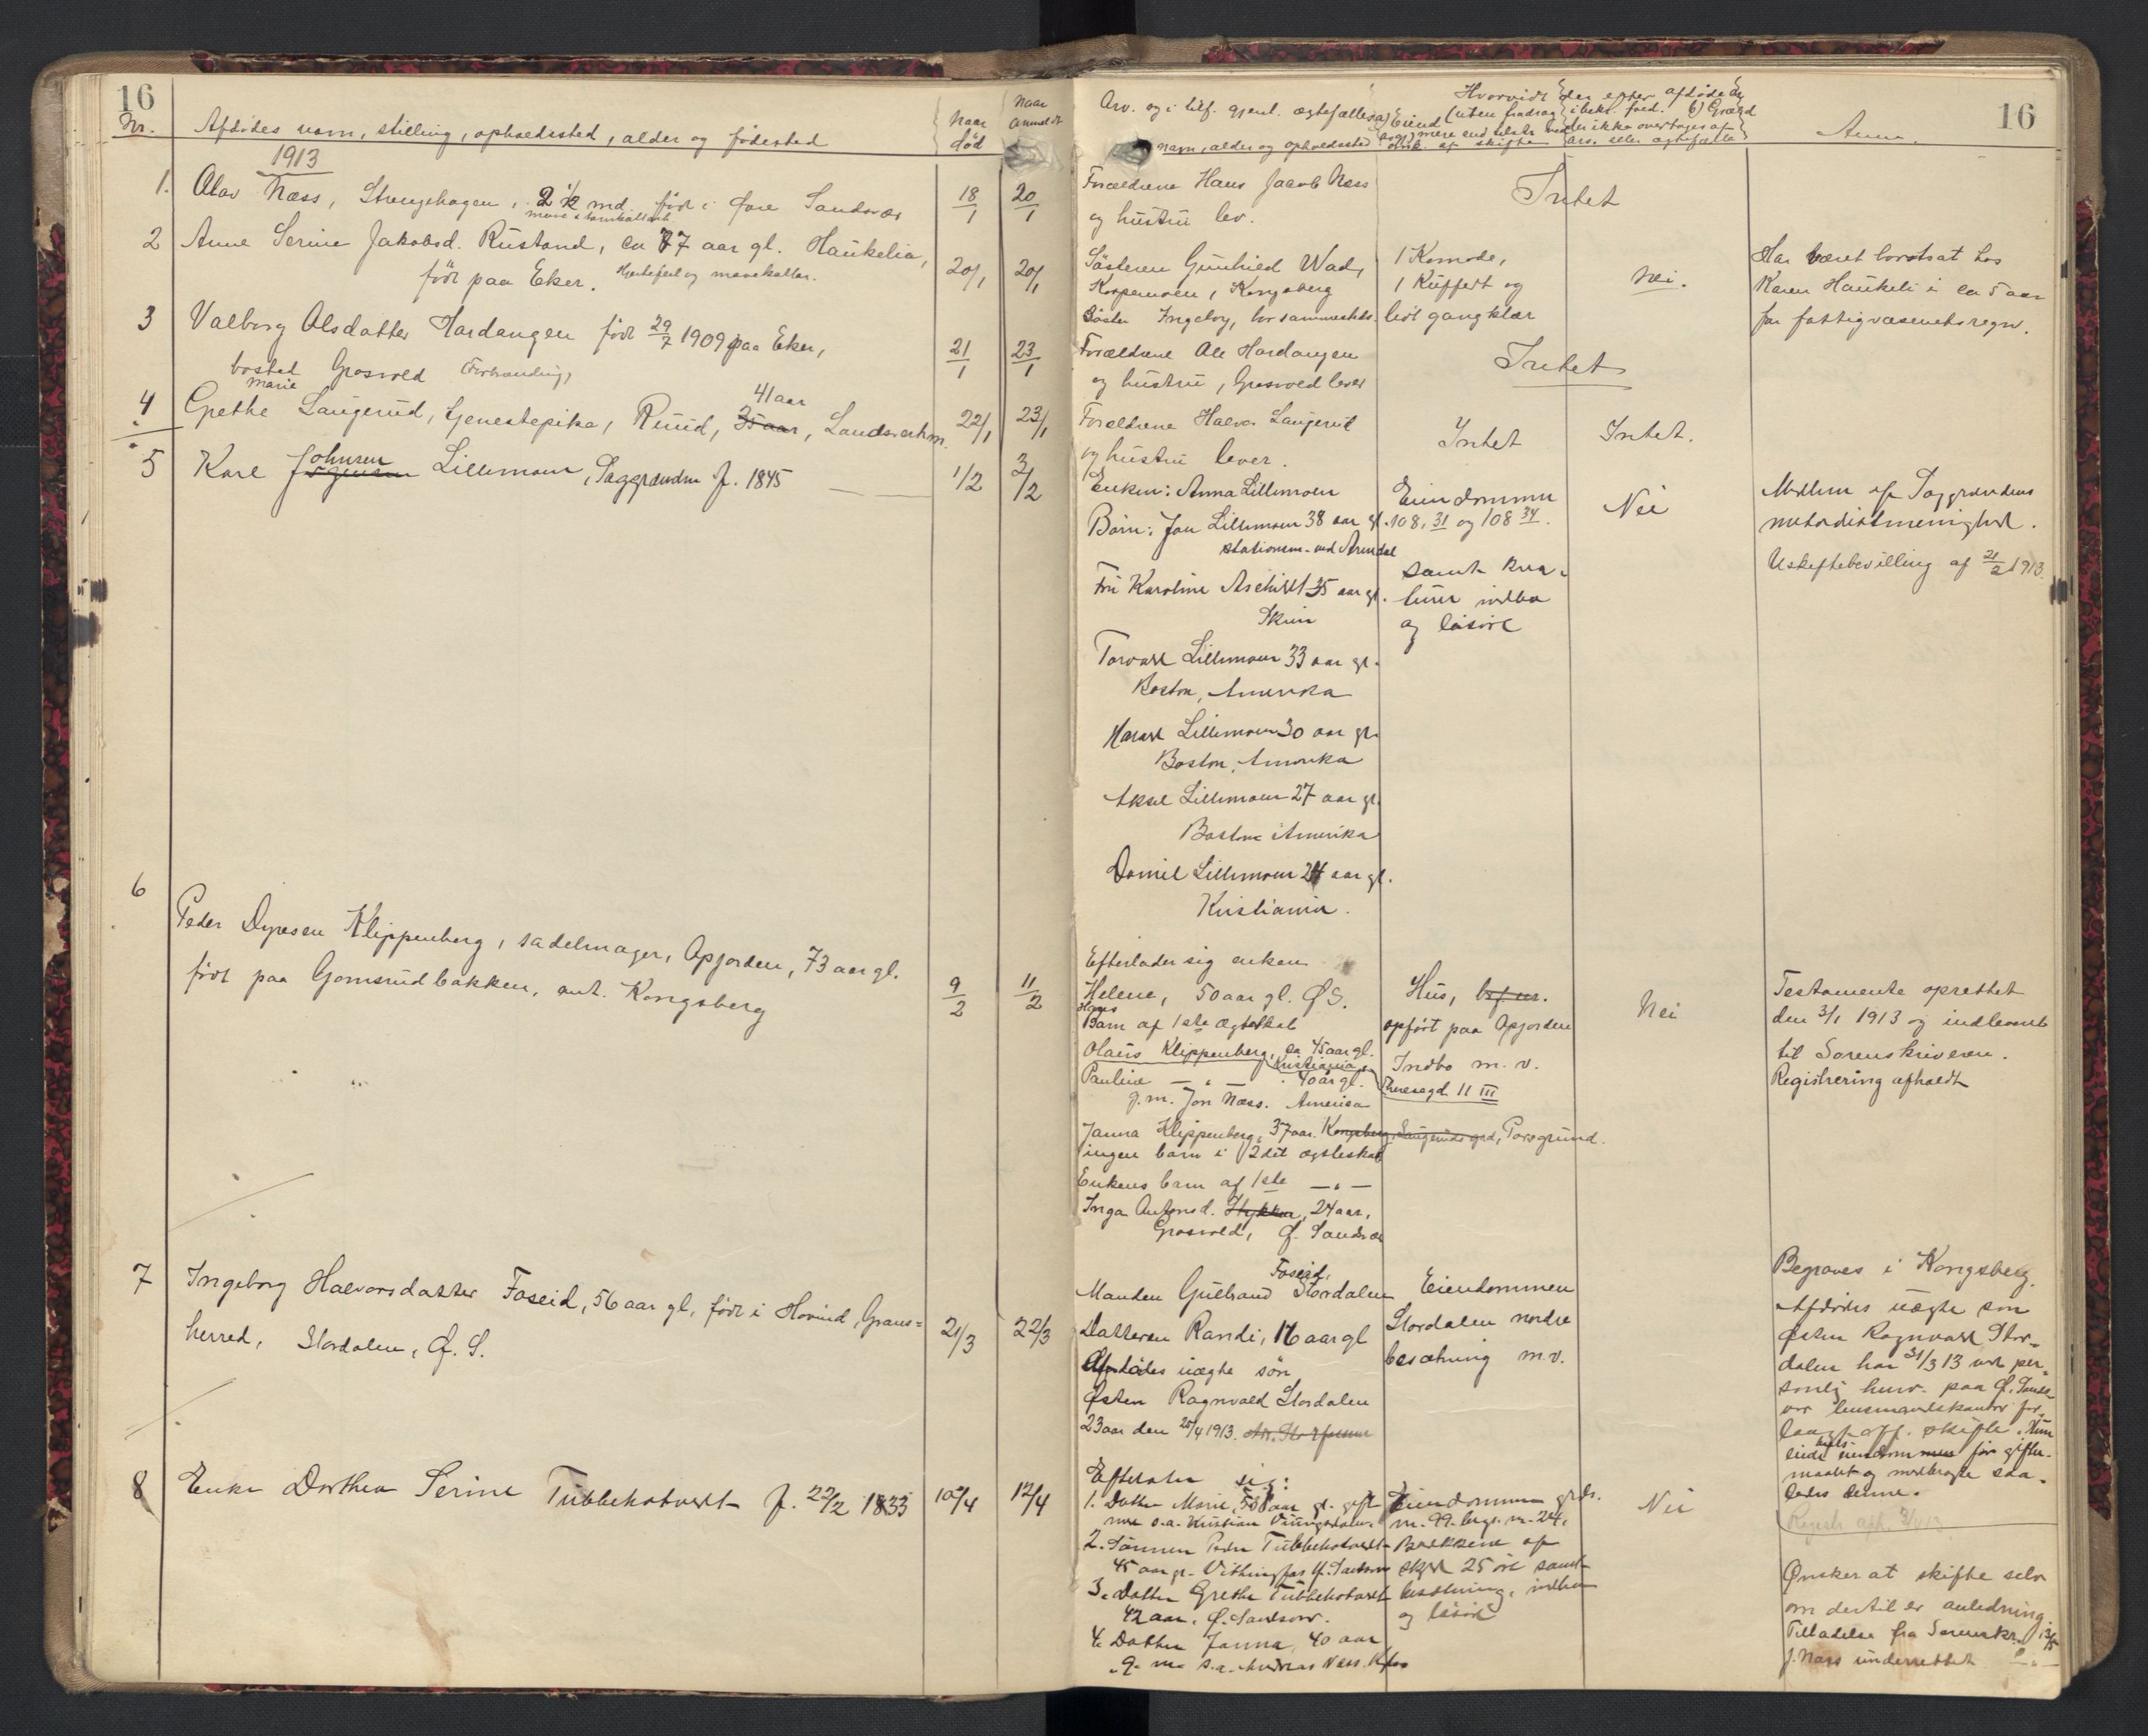 16
Nr.
Afdødes navn, stilling, opholdssted, alder og fødested
Naar
død
Naar
anmeldt
1913
1. Olav Næss, Strengehagen, 2 1/2 md. født i Øvre Sandsvær
18/1
20/1
2 Anne Serine Jakobsd. Rustand, ca 77 aar gl. Haukelia,
født paa Eker. Hjertefeil og mavekatar.
20/1
20/1
3 Valborg Olsdatter Hardangen født 29/7 1909 paa Eker,
bosted Grosvold
21/1
23/1
Marie
41 aar
4 Grethe Laugerud, tjenestepike, Ruud, 35 aar, Landsverkm.
22/1
23/1
Johnsen
5 Karl Jørgensen Lillemoen, Saggrenden f. 1845
1/2
3/2
6
Peder Dyresen Klippenberg, sadelmager, Apjorden, 73 aar gl.
født paa Gomsrudbakken, ant. Kongsberg
9/2
11/2
7 Ingeborg Halvorsdatter Foseid, 56 aar gl, født i Hovind, Grans=
herred, Stordalen, Ø. S.
21/3
22/3
8 Enke Dorthea Serine Tubbehotvedt f. 22/2 1833
10/4
12/4
16
Arv. og i tilf. gjenl. ægtefælles
navn, alder og opholdssted
Hvorvidt der efter afdøde er
a) Eiend (uten fradrag i bekt. fæld. b) Gjæld
der ikke overtages af
arv. eller ægtefælle
Anm.
Forældrene Hans Jacob Næss
og hustru lev.
Intet
Søsteren Gunhild Wad,
Korpemoen, Kongsberg
Søster Ingeborg, bor sammesteds.
1 Komode,
1 Kuffert og
lidt gangklær
Nei.
Har været bortsat hos
Karen Haukeli i ca 5 aar
for fattigvæsenets regn.
Forældrene Ole Hardangen
og hustru, Grosvold lever
Intet
Forældrene Halvor Laugerud
og hustru lever.
Intet
Intet.
Enken: Anna Lillemoen
Børn: Jon Lillemoen 38 aar gl.
stationsm. ved Arendal
Fru Karoline Aschildt 35 aar gl.
Skien
Torvald Lillemoen 33 aar gl.
Boston, Amerika
Harald Lillemoen 30 aar gl.
Boston, Amerika
Aksel Lillemoen 27 aar gl.
Boston Amerika
Daniel Lillemoen 24 aar gl.
Kristiania.
Eiendommen
108, 31 og 108 34.
samt krea-
turer indbo
og løsøre
Nei
Medlem af Saggrendens
metodistmenighed.
Uskiftebevilling af 21/2 1913.
Efterlader sig enken
Helene, 50 aar gl. Ø S.
Hans
Barn af 1ste ægteskab
Olaus Klippenberg, ca 45 aar gl.
Kristiania,
Pauline — " — 40 år gl.
Theresegd. 11 III
g. m. Jon Næss. Amerika
Janna Klippenberg, 37 aar. Kongsberg, Laugerudsgrd, Porsgrund.
ingen barn i 2det ægteskab
Enkens barn af 1ste — " —
Inga Antonsd. 24 aar,
Grosvold, Ø. Sandsvær
Hus,
opført paa Apjorden
Indbo m. v.
Nei
Testamente oprettet
den 3/1 1913 og indleveret
til Sorenskriveren.
Registrering afholdt
Foseid,
Manden Gulbrand Stordalen
Datteren Randi, 16 aar gl
Afdødes uægte søn
Østen Ragnvald Stordalen
23 aar den 25/4 1913.
Eiendommen
Stordalen nordre
besætning m.v.
Begraves i Kongsberg.
Afdødes uægte søn
Østen Ragnvald Stor-
dalen har 31/3 13 ved per-
sonlig henv. paa Ø. Sands-
vær lensmandskontor for-
langt off. skifte. Hun
eiede eiendommen før gifter-
maalet og medbragte saa-
ledes denne.
Registr. afh.
Efterlater sig:
1. Datter Marie, 50 aar gl. gift
med s.a. Kristian
2. Sønnen Peder Tubbehotvedt
45 aar gl. Vittingfos Ø. Sandsvær
3. Datter Grethe Tubbehotvedt
42 aar, Ø. Sandsvær.
4. Datter Janna, 40 aar
g. m. s.a. Andreas Næss. Kfos
Eiendommen grds.
nr. 99. brgs. nr. 24,
Bakkene af
skyld 25 øre samt
besætning, indbo
og løsøre
Nei
Ønsker at skifte selv
om dertil er anledning.
Tilladelse fra Sorenskr. 13/5
J. Næss underrettet — " —